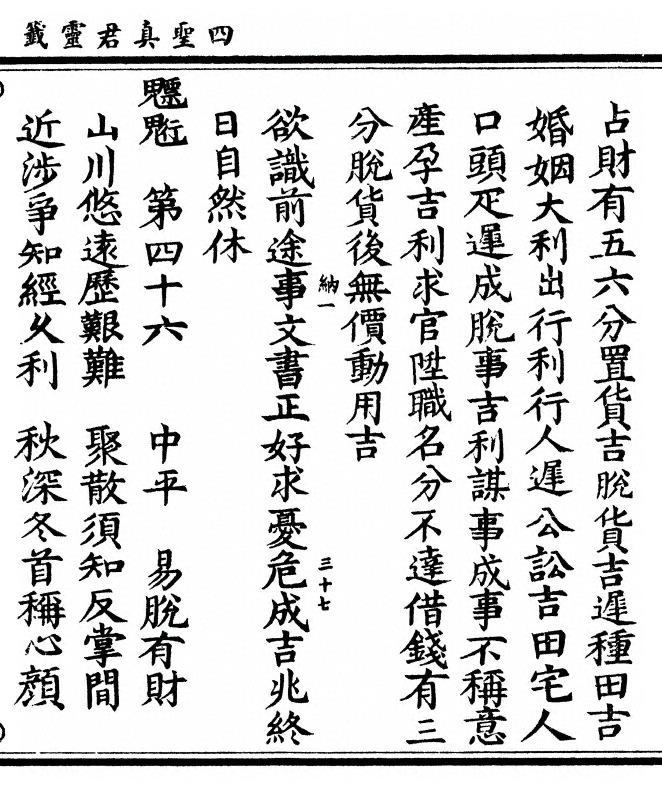 四聖真君靈籤
占財有五六分置貨吉脫貨吉遲種田吉
婚姻大利出行利行人遲公訟吉田宅人
口頭疋遲成脫事吉利謀事成事不稱意
產孕吉利求官陞職名分不達借錢有三
分脫貨後無價動用吉
納一
三十七
欲識前途事文書正好求憂危成吉兆終
日自然休
第四十六 中平 易脫有財
山川悠遠歷艱難 聚散須知反掌間
近涉爭知經久利 秋深冬首稱心顏